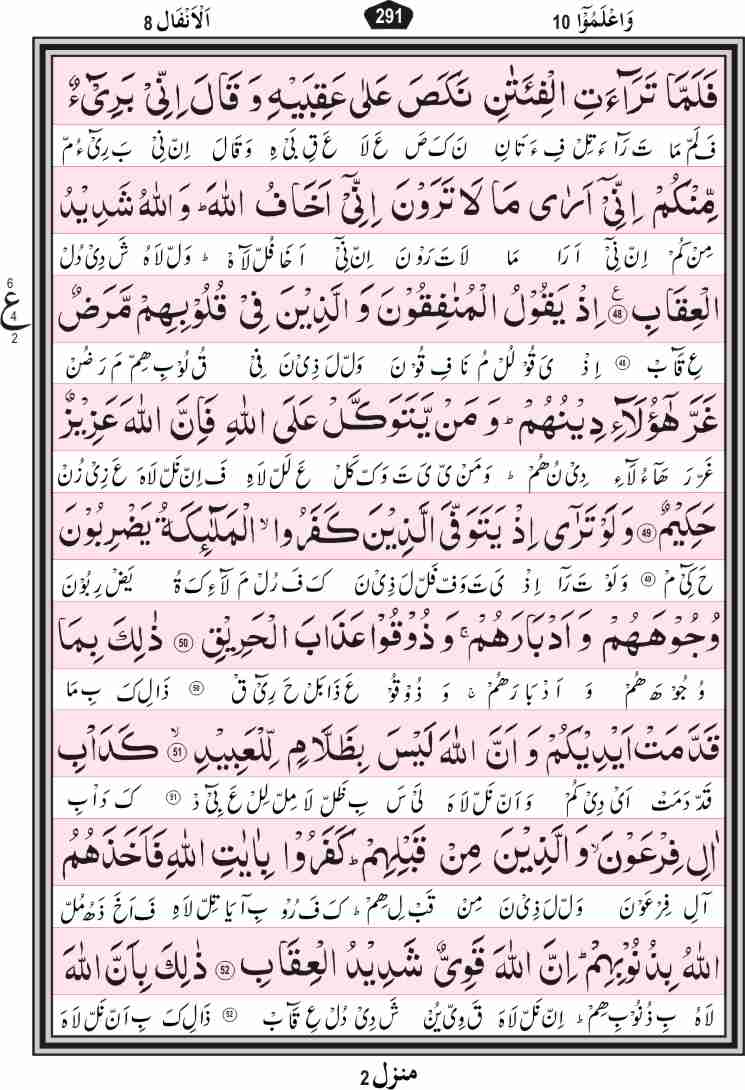 وَاعْلَمُوْٓا 10
291
اَلْاَنْفَال 8
فَلَمَّا تَرَآءَتِ الْفِئَتٰنِ نَكَصَ عَلٰى عَقِبَيْهِ وَ قَالَ اِنِّىْ بَرِىْٓءٌ
فَ لَمْ مَا تَ رَآ ءَ تِلْ فِ ءَ تَانِ نَ كَ صَ عَ لَا عَ قِ بَىْ هِ وَ قَالَ اِنْ نِىْ بَ رِىْٓ ءُ مْ
مِّنْكُمْ اِنِّىْٓ اَرٰى مَا لَا تَرَوْنَ اِنِّىْٓ اَخَافُ اللّٰهَ ؕ وَاللّٰهُ شَدِيْدُ
مِنْ كُمْ اِنْ نِىْٓ اَ رَا مَا لَا تَ رَوْ نَ اِنْ نِىْٓ اَ خَا فُلْ لَاهَ ؕ وَلْ لَاهُ شَ دِىْ دُلْ
6
ع
4
2
الْعِقَابِ ۠ 48 اِذْ يَقُوْلُ الْمُنٰفِقُوْنَ وَ الَّذِيْنَ فِىْ قُلُوْبِهِمْ مَّرَضٌ
عِ قَآبْ 48 اِذْ ىَ قُوْ لُلْ مُ نَا فِ قُوْنَ وَلْ لَ ذِىْ نَ فِىْ قُ لُوْ بِ هِمْ مَ رَ ضُنْ
غَرَّ هٰٓؤُلَآءِ دِيْنُهُمْ ؕ وَ مَنْ يَّتَوَكَّلْ عَلَى اللّٰهِ فَاِنَّ اللّٰهَ عَزِيْزٌ
غَرْ رَ هَآ ءُ لَآءِ دِىْ نُ هُمْ ؕ وَ مَنْ ىْ ىَ تَ وَكْ كَلْ عَ لَلْ لَاهِ فَ اِنْ نَلْ لَاهَ عَ زِىْ زُنْ
حَكِيْمٌ 49 وَ لَوْ تَرٰٓى اِذْ يَتَوَفَّى الَّذِيْنَ كَفَرُوا ۙ الْمَلٰٓئِكَةُ يَضْرِبُوْنَ
حَ كِىْٓ مْ 49 وَ لَوْ تَ رَآ اِذْ ىَ تَ وَفْ فَلْ لَ ذِىْ نَ كَ فَ رُلْ مَ لَآ ءِ كَ ةُ يَضْ رِبُوْنَ
وُجُوْهَهُمْ وَ اَدْبَارَهُمْ ۚ وَ ذُوْقُوْا عَذَابَ الْحَرِيْقِ 50 ذٰلِكَ بِمَا
وُ جُوْ هَ هُمْ وَ اَدْ بَا رَ هُمْ ۚ وَ ذُوْ قُوْ عَ ذَا بَلْ حَ رِىْٓ قْ 50 ذَالِ كَ بِ مَا
قَدَّمَتْ اَيْدِيْكُمْ وَ اَنَّ اللّٰهَ لَيْسَ بِظَلَّامٍ لِّلْعَبِيْدِ ۙ 51 كَدَاْبِ
قَدْ دَ مَتْ اَىْ دِىْ كُمْ وَ اَنْ نَلْ لَاهَ لَىْ سَ بِ ظَلْ لَا مِلْ لِلْ عَ بِىْٓ دْ 51 كَ دَاْبِ
اٰلِ فِرْعَوْنَ ۙ وَ الَّذِيْنَ مِنْ قَبْلِهِمْ ؕ كَفَرُوْا بِاٰيٰتِ اللّٰهِ فَاَخَذَهُمُ
آلِ فِرْ عَوْنَ وَلْ لَ ذِىْ نَ مِنْ قَبْ لِ هِمْ ؕ كَ فَ رُوْ بِ آ يَا تِلْ لَاهِ فَ اَ خَ ذَ هُ مُلْ
اللّٰهُ بِذُنُوْبِهِمْ ؕ اِنَّ اللّٰهَ قَوِىٌّ شَدِيْدُ الْعِقَابِ 52 ذٰلِكَ بِاَنَّ اللّٰهَ
لَاهُ بِ ذُ نُوْ بِ هِمْ ؕ اِنْ نَلْ لَاهَ قَ وِىْ يُنْ شَ دِىْ دُلْ عِ قَآبْ 52 ذَالِ كَ بِ اَنْ نَلْ لَاهَ
منزل 2